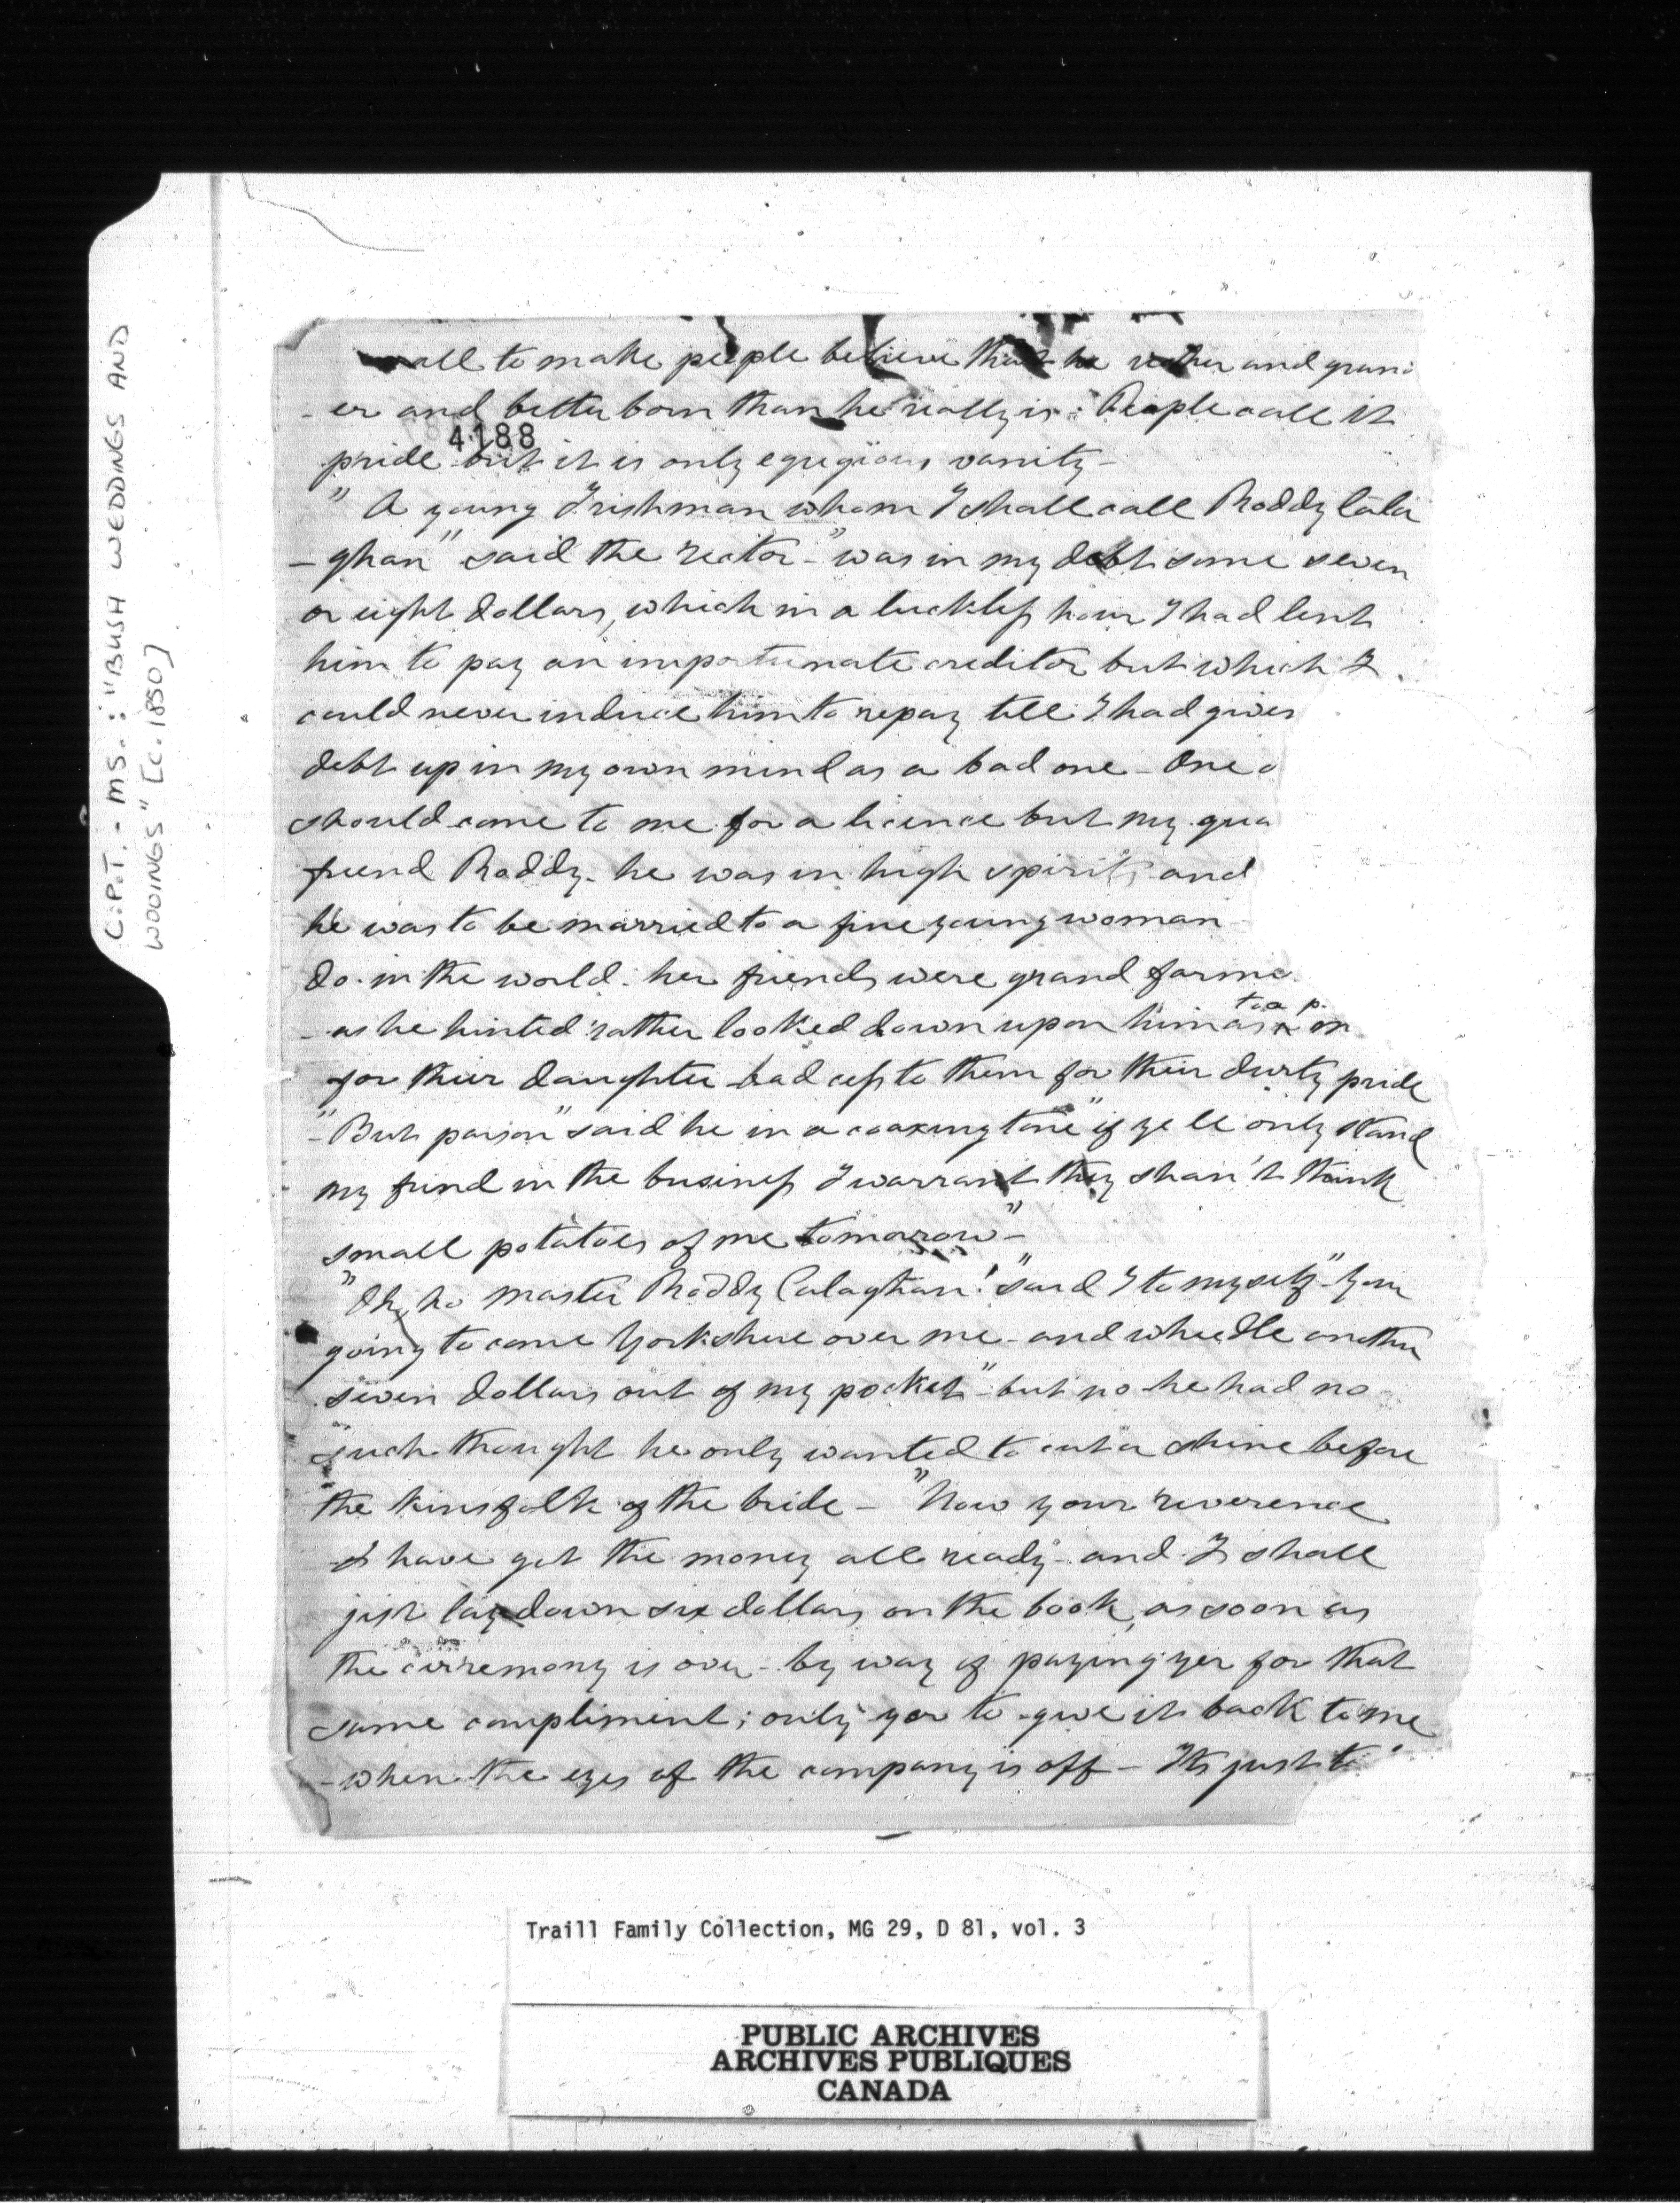 C.P.T. - MS.: "BUSH WEDDINGS AND
WOOINGS" [c. 1850]
all to make people believe that he richer and grand
- er and better born than he really is: People call it
4188
pride but it is only egregious vanity -
" A young Irishman whom I shall call Roddy Cala
- ghan" said the rector - "was in my debt some seven
or eight dollars, which in a luckless hour I had lent
him to pay an importunate creditor but which I
could never induce him to repay till I had given
debt up in my own mind as a bad one - One
should come to me for a licence but my
friend Roddy - he was in high spirits and
he was to be married to a fine young woman
do in the world. her friends were grand
- as he hinted rather looked down upon him as
for their daughter bad cess to them for their durty pride
"- But parson" said he in a coaxing tone "if ye ll only stand
my frind in the business I warrant they shan't think
small potatoes of me tomorrow" -
"Oh, ho Master Roddy Calaghan!" said I to myself - "You
going to come Yorkshire over me - and wheedle another
seven dollars out of my pocket" - but no he had no
such thought he only wanted to cut a shine before
the kinsfolk of the bride - "Now your reverence
I have got the money all ready - and I shall
jist lay down six dollars on the book, as soon as
the cirremony is over - by way of paying yer for that
same compliment; only yer to give it back to me
- when the eyes of the company is off - Its just to
Traill Family Collection, MG 29, D 81, vol. 3
PUBLIC ARCHIVES
ARCHIVES PUBLIQUES
CANADA